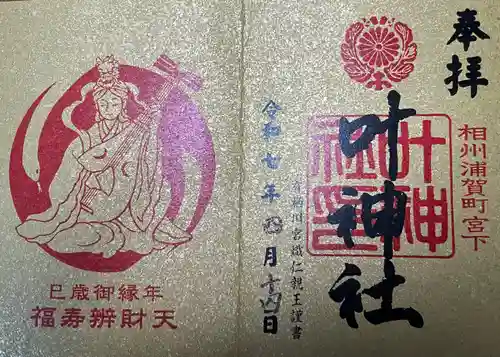 奉拝
相州浦賀町宮下
叶神社
叶神社印
有栖川宮幟仁親王謹書
令和七年四月十四日
巳歳御縁年
福寿辨財天